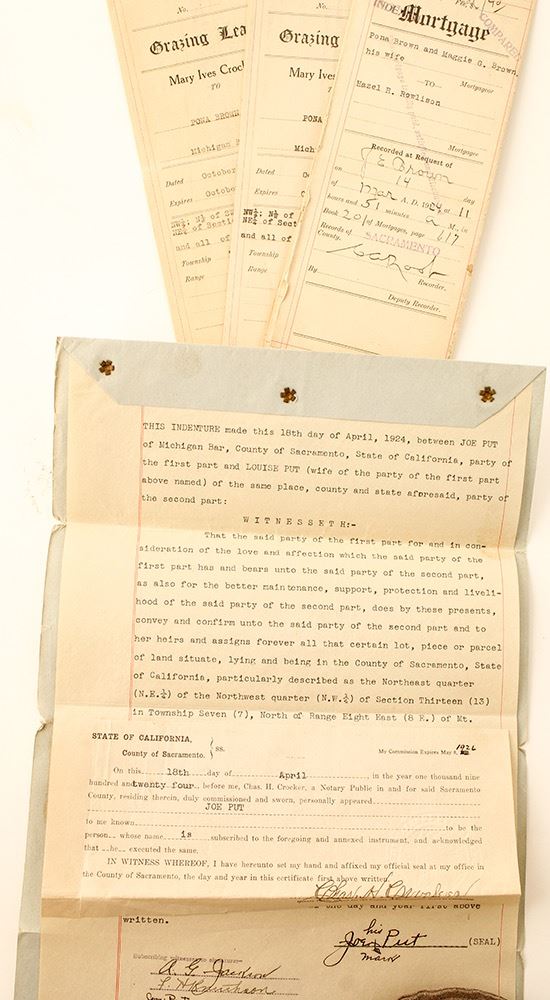 No.
Grazing Lea
Mary Ives Croc
TO
PONA BROWN
Michigan
Dated October
Expires Octobe
NW¼: N½ of S
NE¼ of Section
and all of
Township
Range
No.
Grazing
Mary Ives
TO
PONA
Mich
Dated Oc
Expires O
NW¼: N½ of
NE¼ of Sect
and all of
Township
Range
INDE
COMPARED
Mortgage
Pona Brown and Maggie G. Brown,
his wife
Mortgagor
TO
Hazel R. Rowlison
Mortgagee
Recorded at Request of
J. E. Brown
on 14 day
of Mar A. D. 1924, at 11
hours and 51 minutes a M., in
Book 201 of Mortgages, page 117
Records of SACRAMENTO
County.
Recorder.
By
Deputy Recorder.
THIS INDENTURE made this 18th day of April, 1924, between JOE PUT
of Michigan Bar, County of Sacramento, State of California, party of
the first part and LOUISE PUT (wife of the party of the first part
above named) of the same place, county and state aforesaid, party of
the second part:
WITNESSETH:-
That the said party of the first part for and in con-
sideration of the love and affection which the said party of the
first part has and bears unto the said party of the second part,
as also for the better maintenance, support, protection and liveli-
hood of the said party of the second part, does by these presents,
convey and confirm unto the said party of the second part and to
her heirs and assigns forever all that certain lot, piece or parcel
of land situate, lying and being in the County of Sacramento, State
of California, particularly described as the Northeast quarter
(N.E.¼) of the Northwest quarter (N.W.¼) of Section Thirteen (13)
in Township Seven (7), North of Range Eight East (8 E.) of Mt.
STATE OF CALIFORNIA,
County of Sacramento. } ss.
My Commission Expires May 8, 1926
On this 18th day of April, in the year one thousand nine
hundred and twenty four, before me, Chas. H. Crocker, a Notary Public in and for said Sacramento
County, residing therein, duly commissioned and sworn, personally appeared
JOE PUT
to me known to be the
person whose name is subscribed to the foregoing and annexed instrument, and acknowledged
that he executed the same.
IN WITNESS WHEREOF, I have hereunto set my hand and affixed my official seal at my office in
the County of Sacramento, the day and year in this certificate first above written.
the day and year first above
written.
his
Joe Put (SEAL)
mark
A. G. Jackson